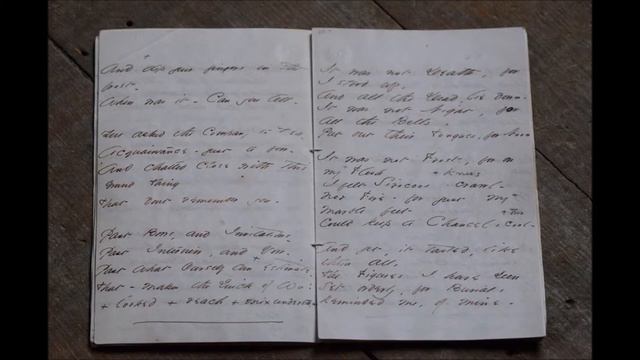 And dip your fingers in the
frost.
When was it - Can you tell -
Just asked the Company to tea -
Acquaintance - just a few -
And chatted Close with this
Grand Thing
That don't remember you -
Past Bows, and Invitations -
Past Interview, and Vow -
Past what Ourself can Estimate -
That - makes the Quick of Wo!
It was not Death, for
I stood up,
And all the Dead, lie down -
It was not Night, for
all the Bells
Put out their Tongues, for Noon
It was not Frost, for on
my Flesh + Knees
I felt Siroccos - crawl -
Nor Fire - for just my
marble feet
Could keep a Chancel, cool -
And yet, it tasted, like
them all,
The Figures I have seen
Set orderly, for Burial,
Reminded me, of mine -